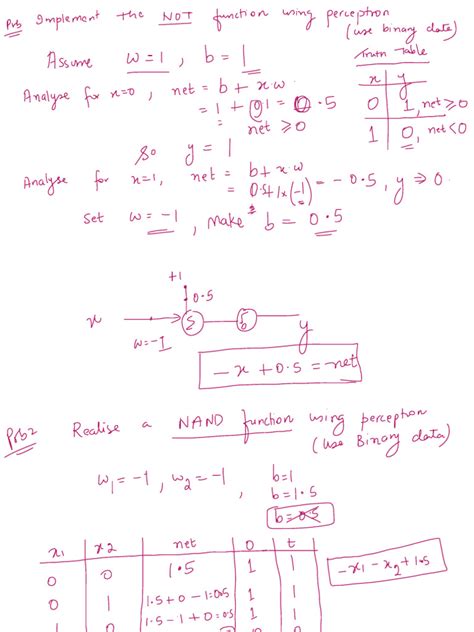 Prb Implement the NOT function using perceptron
(use binary data)
Assume w=1, b=1
Truth Table
x y
0 1, net≥0
1 0, net<0
Analyse for x=0, net = b + xw
= 1 + 0 1 = 0.5
= net ≥ 0
So y = 1
Analyse for x=1, net = b + xw
= 0.5+1x(-1) = -0.5, y ⇒ 0
Set w = -1, make b = 0.5
+1
0.5
x Σ y
w=-1
-x + 0.5 = net
Prb2 Realise a NAND function using perceptron
(use Binary data)
w1 = -1, w2 = -1, b=1
b=1.5
b=0.5
x1 x2 net O t
0 0 1.5 1 1
-x1 - x2 + 1.5
0 1 1.5+0-1=0.5 1 1
1.5-1+0=0.5 1 1